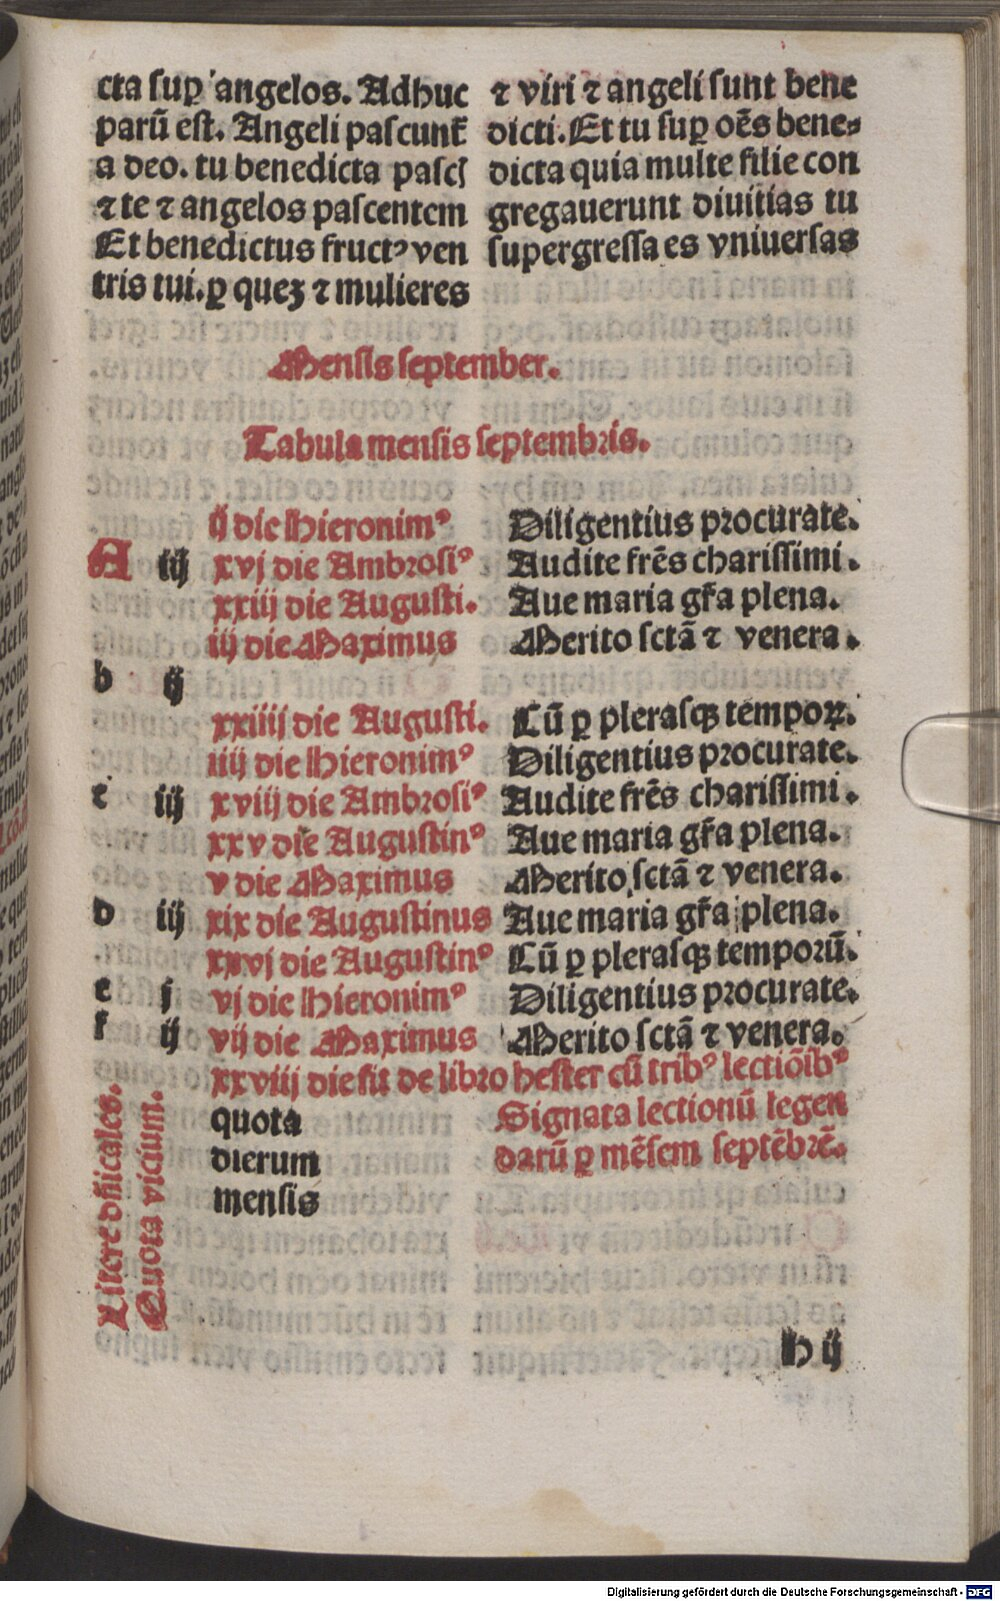 cta suꝑ angelos. Adhuc
parū est. Angeli pascunt̄
a deo. tu benedicta pasci
⁊ te ⁊ angelos pascentem
Et benedictus fructꝰ ven
tris tui. ꝑ quez ⁊ mulieres
⁊ viri ⁊ angeli sunt bene
dicti. Et tu suꝑ oēs bene⸗
dicta quia multe filie con
gregauerunt diuitias tu
supergressa es vniuersas
Mensis september.
Tabula mensis septembris.
ij die Hieronimꝰ Diligentius procurate.
A iij xvj die Ambrosiꝰ Audite frēs charissimi.
xxiij die Augusti. Aue maria gr̄a plena.
iij die Maximus Merito sctā ⁊ venera.
b ij
xxiiij die Augusti. Cū ꝑ plerasqꝫ tempoꝝ.
iiij die Hieronimꝰ Diligentius procurate.
c iij xviij die Ambrosiꝰ Audite frēs charissimi.
xxv die Augustinꝰ Aue maria gr̄a plena.
v die Maximus Merito sctā ⁊ venera.
d iij xix die Augustinus Aue maria gr̄a plena.
xxvj die Augustinꝰ Cū ꝑ plerasqꝫ temporū.
e j vj die Hieronimꝰ Diligentius procurate.
f ij vij die Maximus Merito sctā ⁊ venera.
xxviij die fit de libro hester cū tribꝰ lectiōibꝰ
quota
dierum
mensis
Signata lectionū legen
darū ꝑ mēsem septēbrē.
Litere dn̄icales.
Quota vicium.
h ij
Digitalisierung gefördert durch die Deutsche Forschungsgemeinschaft - DFG